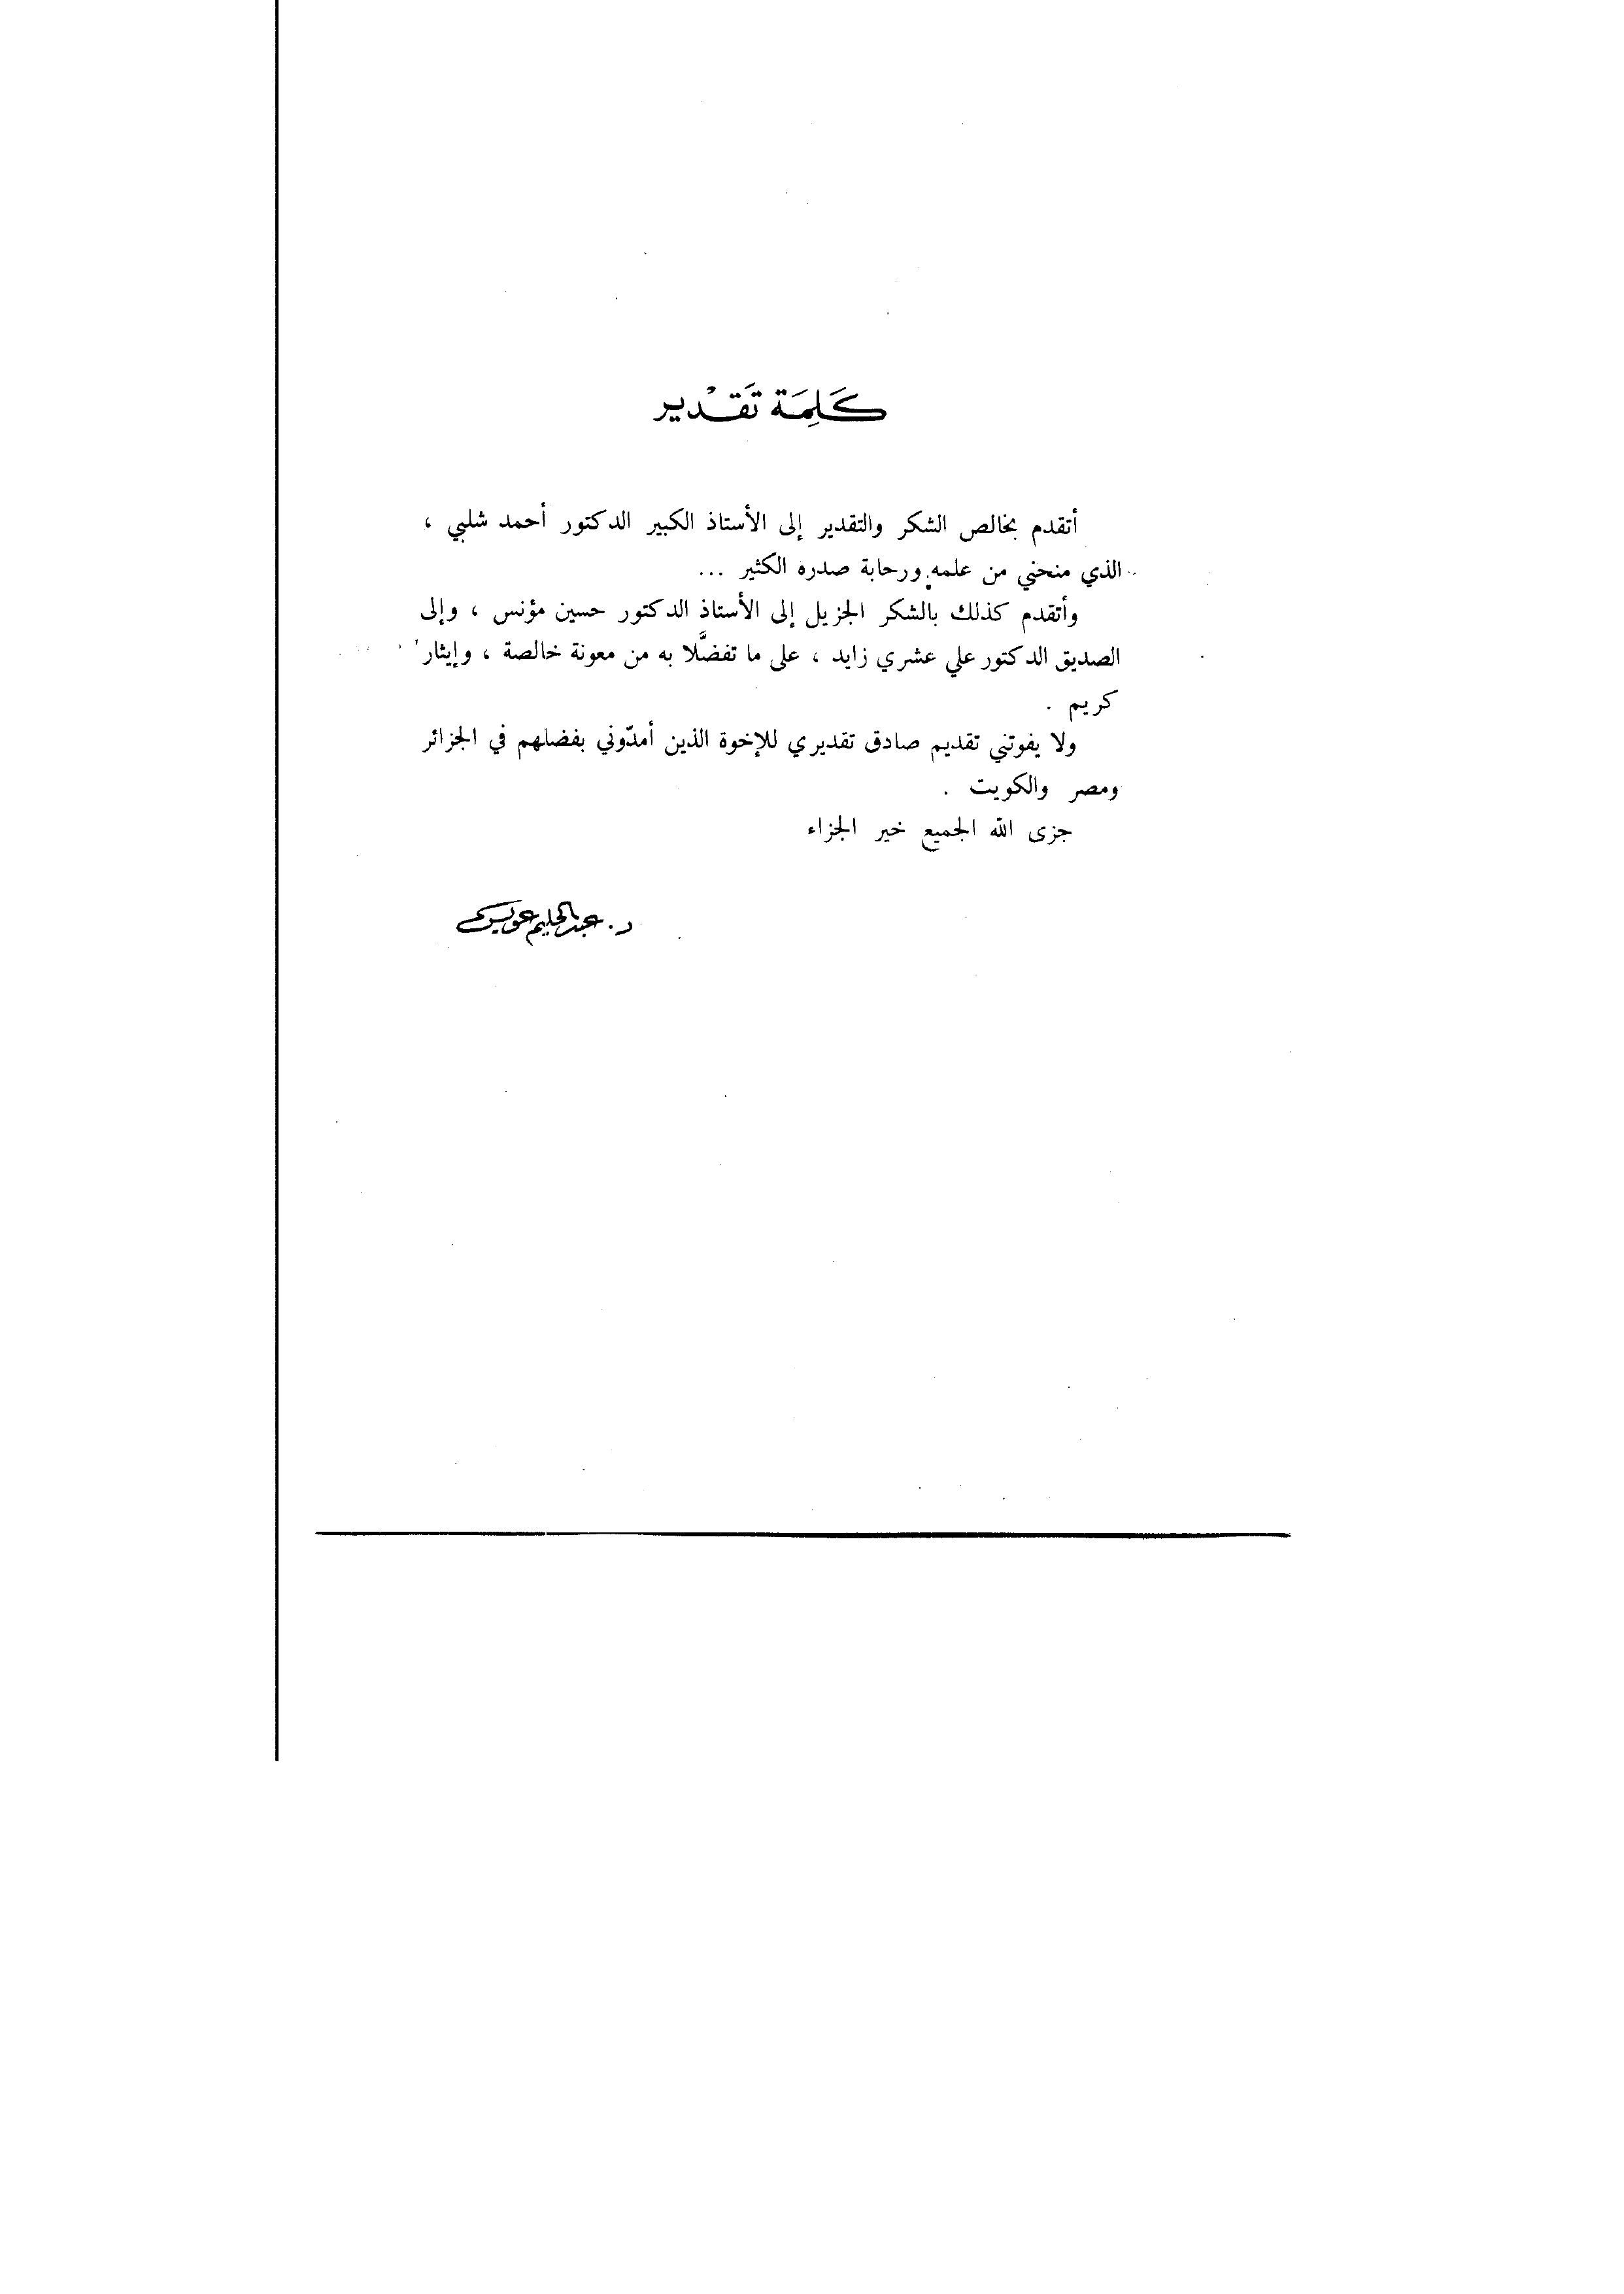 كَلِمَة تَقْدير
أتقدم بخالص الشكر والتقدير إلى الأستاذ الكبير الدكتور أحمد شلبي ،
الذي منحني من علمه ورحابة صدره الكثير ...
وأتقدم كذلك بالشكر الجزيل إلى الأستاذ الدكتور حسين مؤنس ، وإلى
الصديق الدكتور علي عشري زايد ، على ما تفضَّلا به من معونة خالصة ، وإيثار
كريم .
ولا يفوتني تقديم صادق تقديري للإخوة الذين أمدّوني بفضلهم في الجزائر
ومصر والكويت .
جزى الله الجميع خير الجزاء
د. عبد الحليم عويس